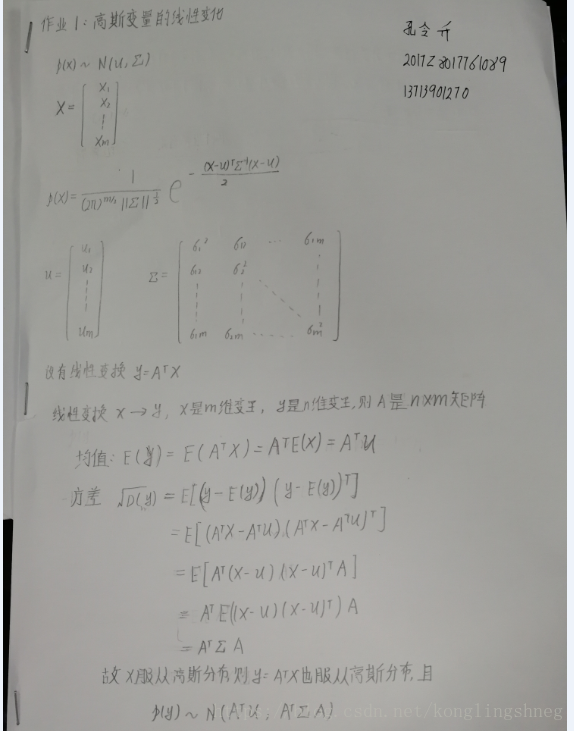 作业1:高斯变量的线性变化
孔令升
2017Z8017761089
13713901270
p(x) ~ N(u, Σ)
X = [x₁ x₂ ⋮ xₘ]
p(x) = 1 / ((2π)^(m/2) ||Σ||^(1/2)) e^(-(x-u)ᵀΣ⁻¹(x-u)/2)
u = [u₁ u₂ ⋮ uₘ] Σ = [6₁² 6₁₂ ⋯ 6₁ₘ
6₁₂ 6₂² ⋮
6₁ₘ 6₂ₘ ⋯ 6ₘ²]
设有线性变换 y=AᵀX
线性变换 x→y, x是m维变量, y是n维变量,则A是n×m矩阵
均值: E(y) = E(AᵀX) = AᵀE(X) = Aᵀu
方差 √D(y) = E[(y-E(y)) (y-E(y))ᵀ]
= E[(AᵀX-Aᵀu).(AᵀX-Aᵀu)ᵀ]
= E[Aᵀ(X-u)(X-u)ᵀA]
= AᵀE((X-u)(X-u)ᵀ)A
= AᵀΣA
故X服从高斯分布,则y=AᵀX也服从高斯分布,且
p(y) ~ N(Aᵀu, AᵀΣA)
csdn.net/konglingshneg